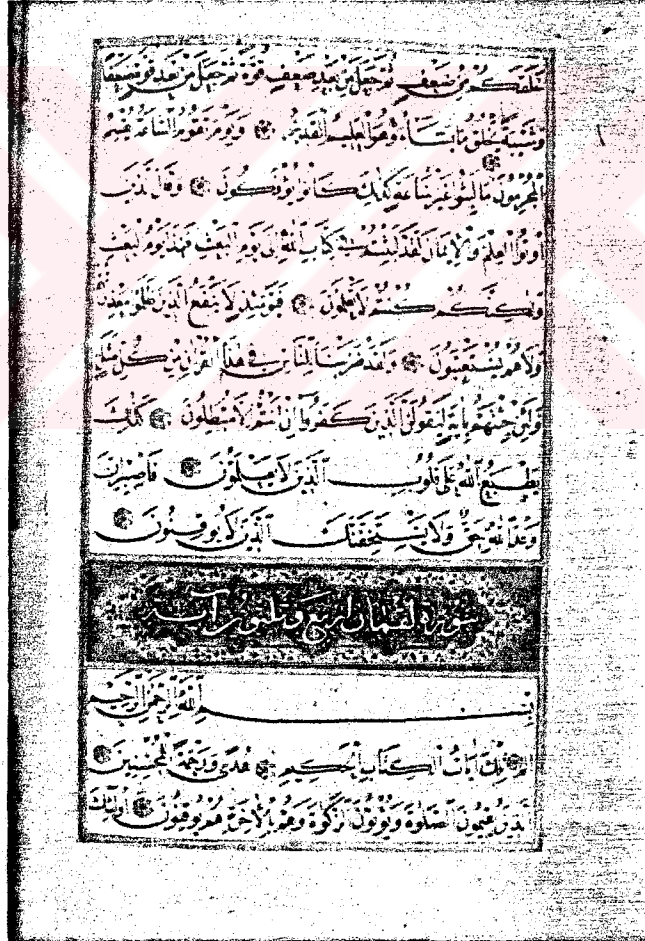 خَلَقَكُمْ مِنْ ضَعْفٍ ثُمَّ جَعَلَ مِنْ بَعْدِ ضَعْفٍ قُوَّةً ثُمَّ جَعَلَ مِنْ بَعْدِ قُوَّةٍ ضَعْفًا
وَشَيْبَةً يَخْلُقُ مَا يَشَاءُ وَهُوَ الْعَلِيمُ الْقَدِيرُ وَيَوْمَ تَقُومُ السَّاعَةُ يُقْسِمُ
الْمُجْرِمُونَ مَا لَبِثُوا غَيْرَ سَاعَةٍ كَذَلِكَ كَانُوا يُؤْفَكُونَ وَقَالَ الَّذِينَ
أُوتُوا الْعِلْمَ وَالْإِيمَانَ لَقَدْ لَبِثْتُمْ فِي كِتَابِ اللَّهِ إِلَى يَوْمِ الْبَعْثِ فَهَذَا يَوْمُ الْبَعْثِ
وَلَكِنَّكُمْ كُنْتُمْ لَا تَعْلَمُونَ فَيَوْمَئِذٍ لَا يَنْفَعُ الَّذِينَ ظَلَمُوا مَعْذِرَتُهُمْ
وَلَا هُمْ يُسْتَعْتَبُونَ وَلَقَدْ ضَرَبْنَا لِلنَّاسِ فِي هَذَا الْقُرْآنِ مِنْ كُلِّ مَثَلٍ
وَلَئِنْ جِئْتَهُمْ بِآيَةٍ لَيَقُولَنَّ الَّذِينَ كَفَرُوا إِنْ أَنْتُمْ إِلَّا مُبْطِلُونَ كَذَلِكَ
يَطْبَعُ اللَّهُ عَلَى قُلُوبِ الَّذِينَ لَا يَعْلَمُونَ فَاصْبِرْ إِنَّ
وَعْدَ اللَّهِ حَقٌّ وَلَا يَسْتَخِفَّنَّكَ الَّذِينَ لَا يُوقِنُونَ
سورة لقمان اربع وثلثون آية
بِسْمِ اللَّهِ الرَّحْمَنِ الرَّحِيمِ
الم تِلْكَ آيَاتُ الْكِتَابِ الْحَكِيمِ هُدًى وَرَحْمَةً لِلْمُحْسِنِينَ
الَّذِينَ يُقِيمُونَ الصَّلَوةَ وَيُؤْتُونَ الزَّكَوةَ وَهُمْ بِالْآخِرَةِ هُمْ يُوقِنُونَ أُولَئِكَ